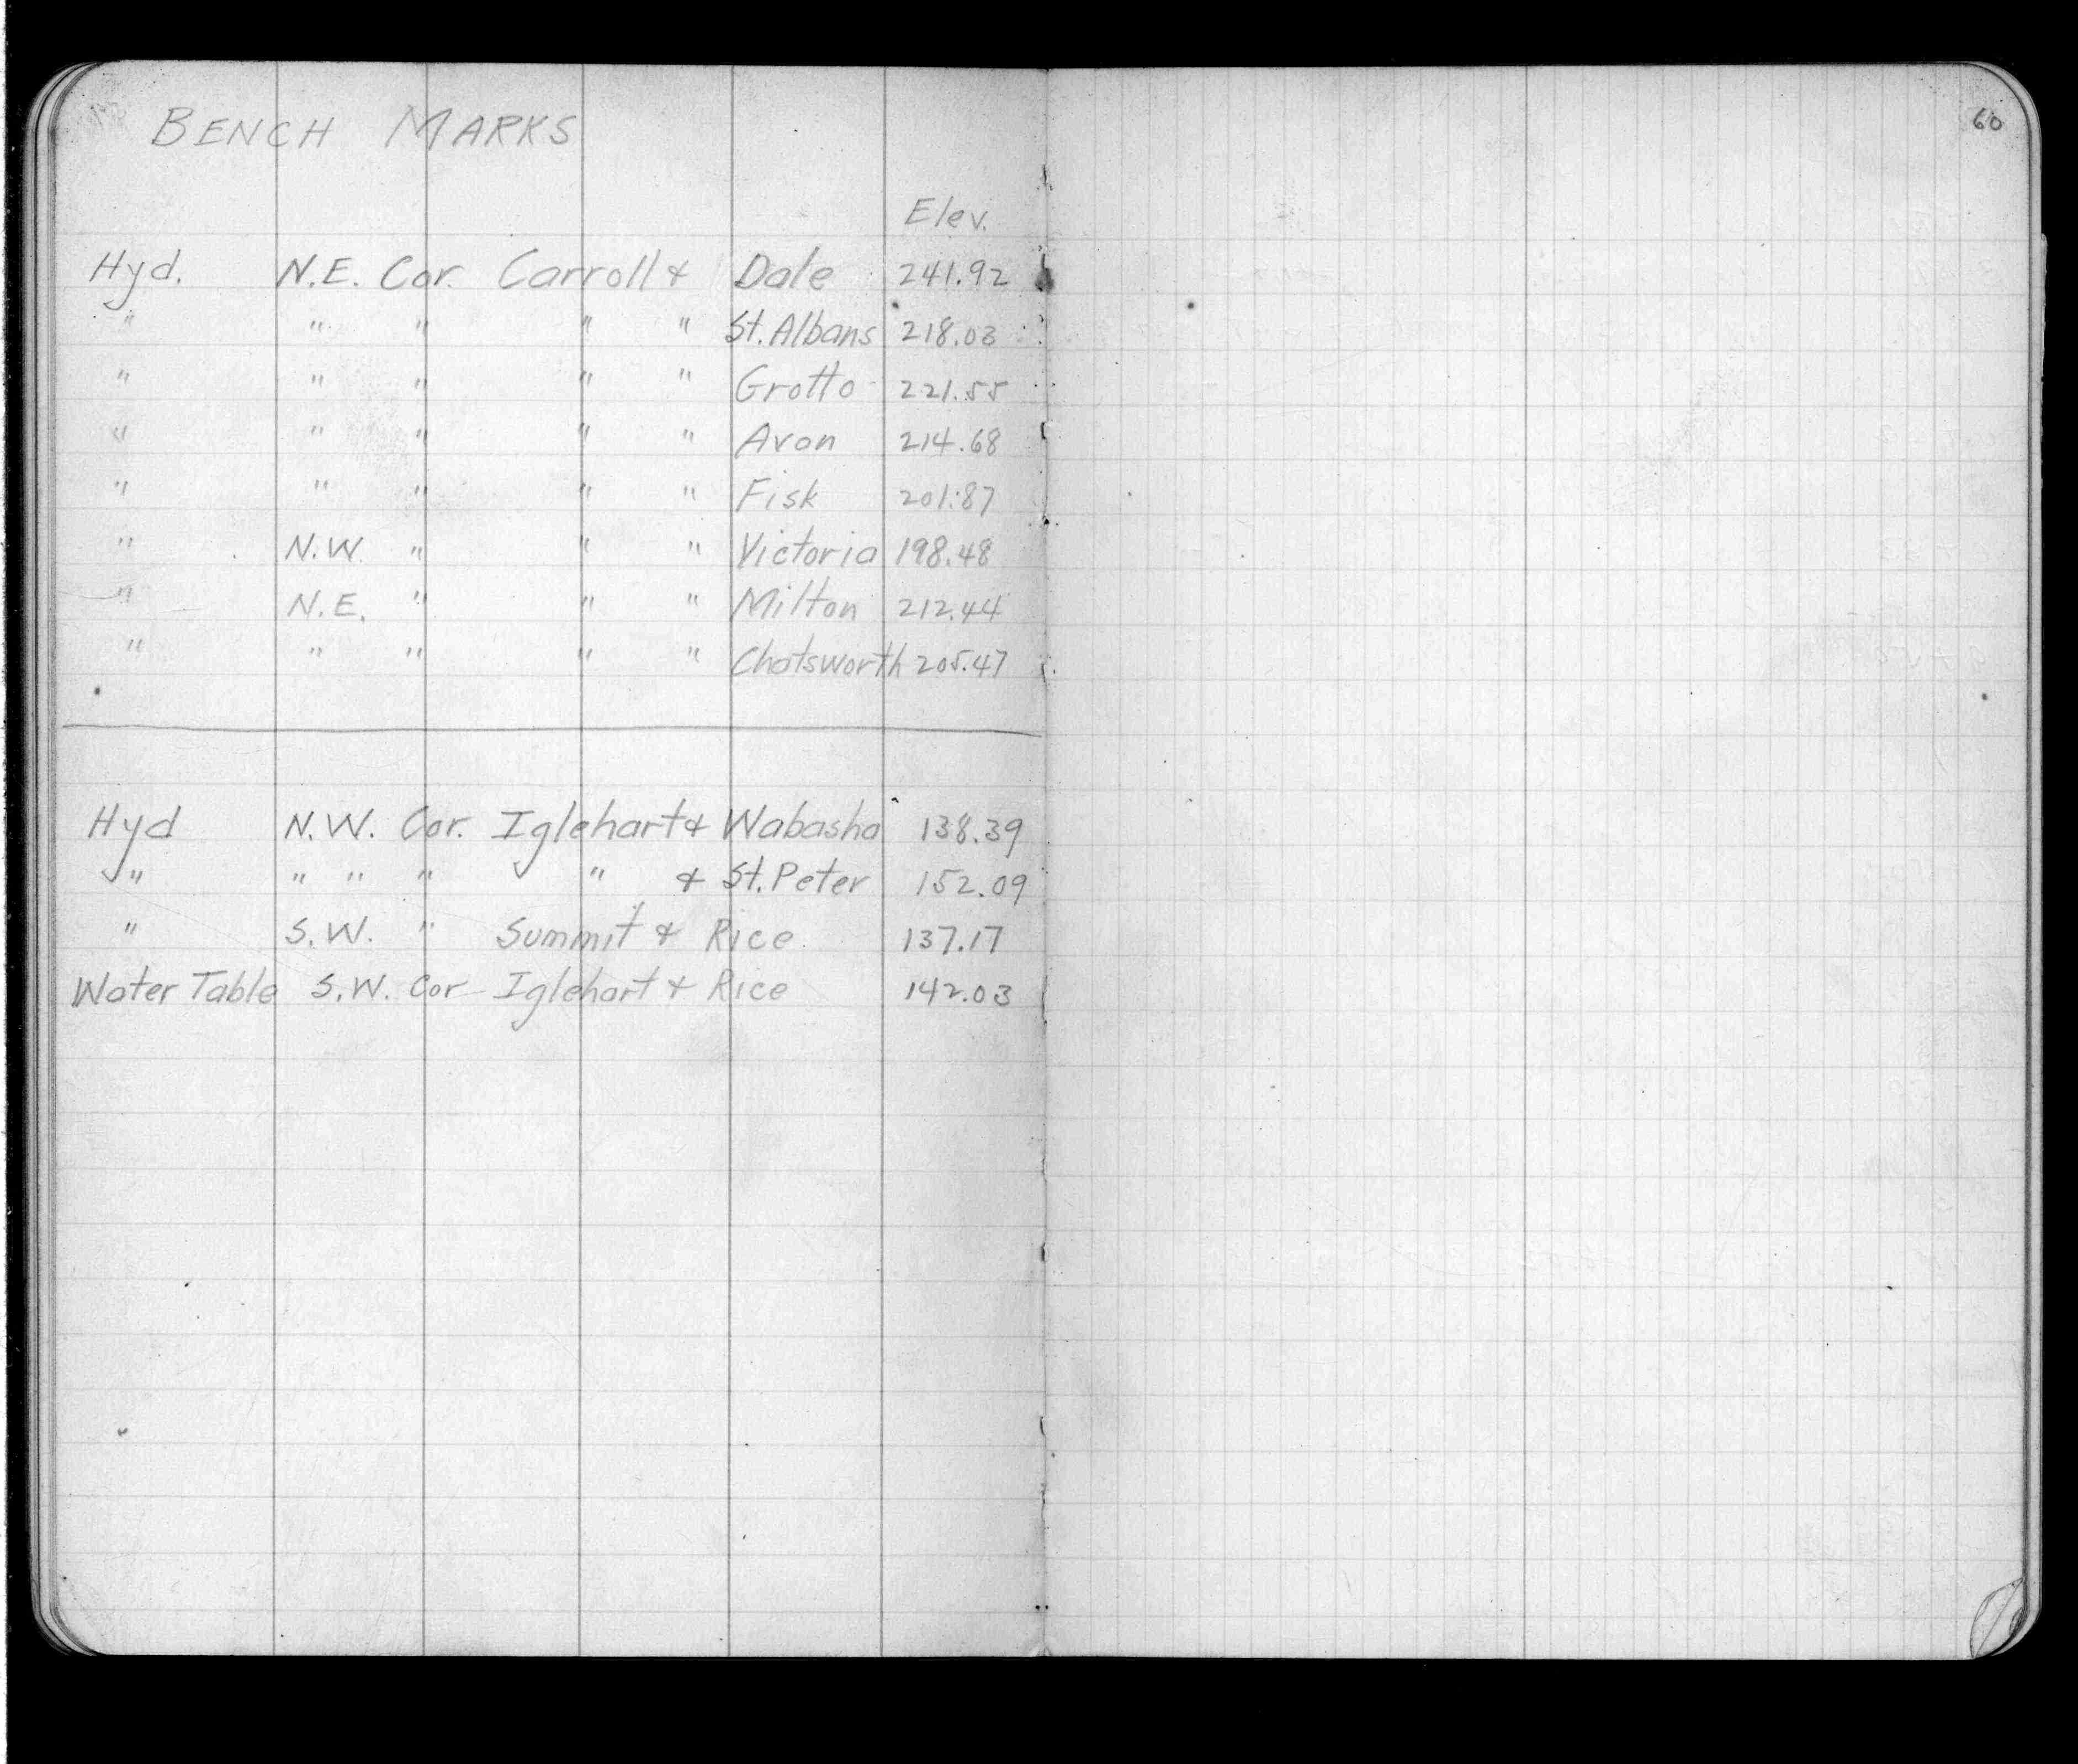 BENCH MARKS
60
Elev.
Hyd. N.E. Cor. Carroll & Dale 241.92
" " " " " St. Albans 218.03
" " " " " Grotto 221.55
" " " " " Avon 214.68
" " " " " Fisk 201.87
" N.W. " " " Victoria 198.48
" N.E. " " " Milton 212.44
" " " " " Chatsworth 205.47
Hyd N.W. Cor. Iglehart & Wabasha 138.39
" " " " " & St. Peter 152.09
" S.W. " Summit & Rice 137.17
Water Table S.W. Cor Iglehart & Rice 142.03